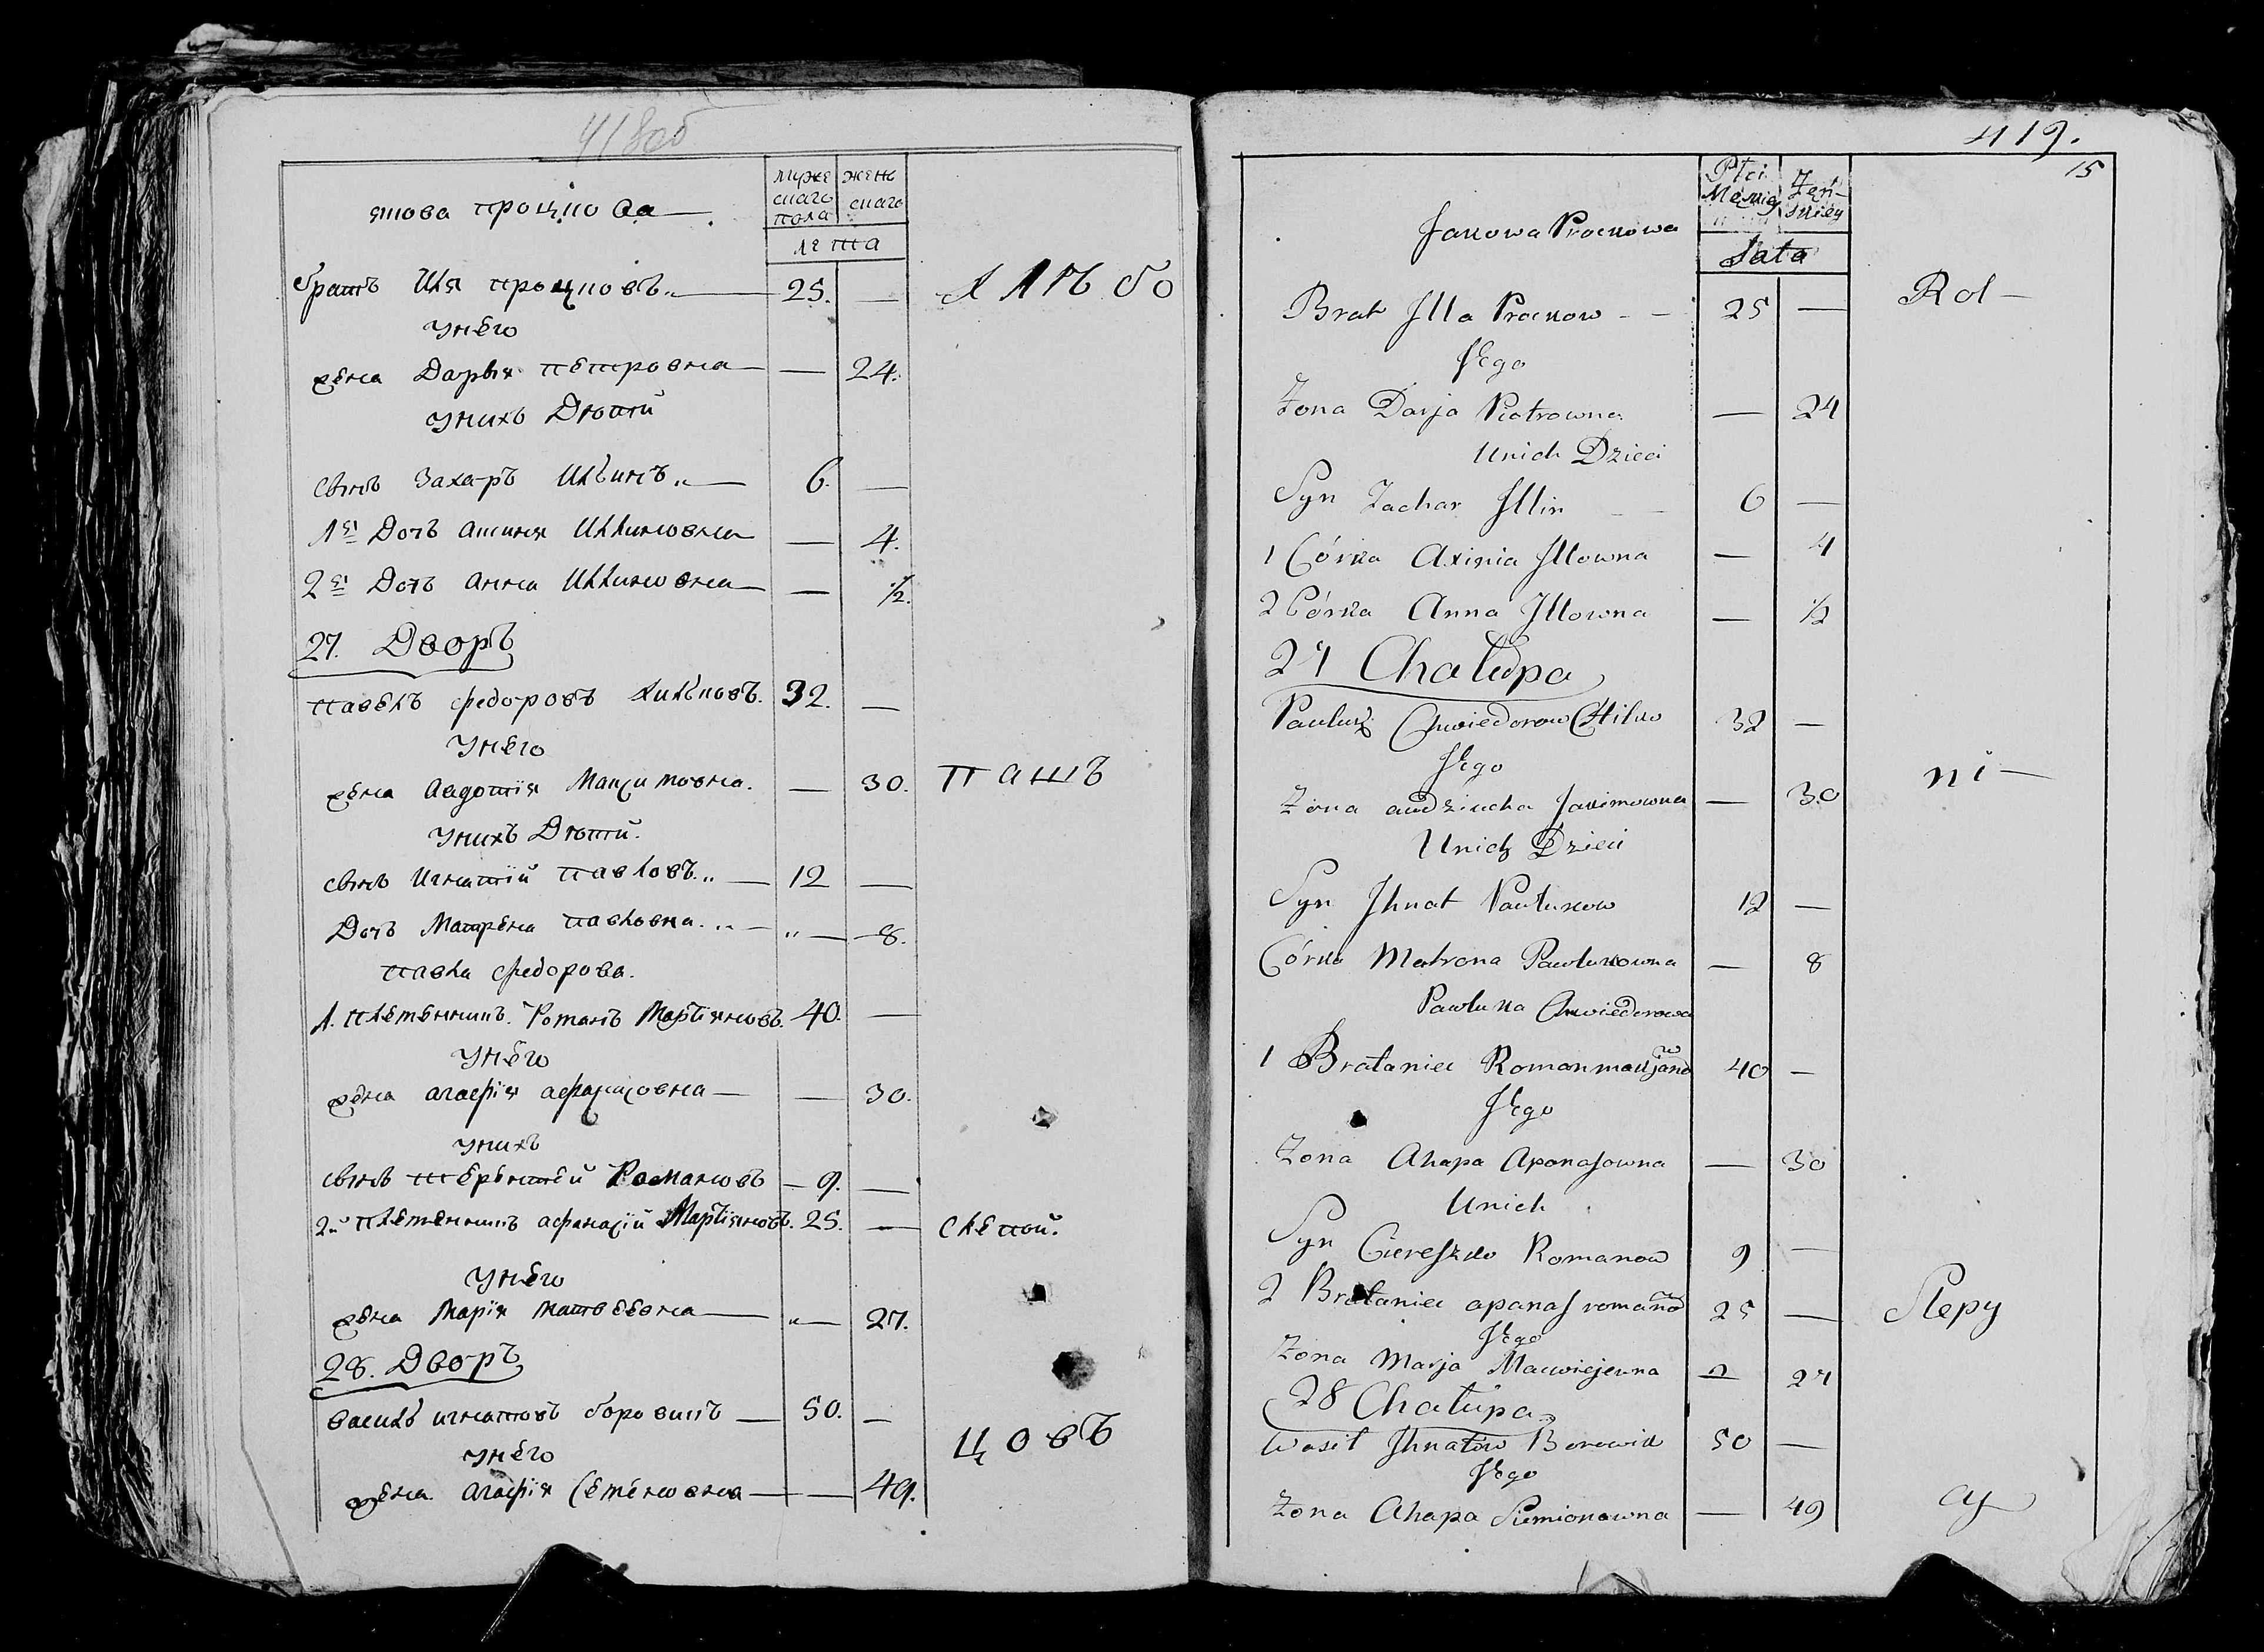 418об
мужескаго пола
женскаго
лета
якова процкова
братъ Иля процковъ 25. — хлѣбо
унего
жена Дарья петровна — 24.
унихъ Дѣти
сынъ Захаръ Ильинъ 6. —
1я Дочь аксиня Иллиновна — 4.
2я Дочь анна Иллиновна — 1/2.
27. Дворъ
павелъ федоровъ 32. —
унего
жена авдотія Максимовна. — 30. пашъ
унихъ Дѣти.
сынъ игнатій павловъ. 12 —
Дочь Матрена павловна. " — 8.
павла федорова.
1. племенникъ. Романъ Мартіяновъ. 40. —
унего
жена агафія афанасовна — — 30.
унихъ
сынъ терентей Романовъ — 9. —
2й племенникъ афанасій Мартіяновъ. 25. — слепой.
унего
жена Марія матвеевна " — 27.
28. Дворъ
василь игнатовъ боровикъ — 50. —
унего цовъ
жена агафія Семеновна — — 49.
419.
15
Płci Męzkiej
Żeńskiey
Lata
Jakowa Prockowa
Brat Jlla Prockow 25 — Rol—
Jego
Zona Darja Piotrowna — 24
Unich Dzieci
Syn Zachar Jllin 6 —
1 Córka Axinia Jllowna — 4
2 Córka Anna Jllowna — 1/2
27 Chałupa
Pauluk Chwiedorow 32 —
Jego ni—
Zona audziucha Jakimowna — 30
Unich Dzieci
Syn Jhnat Pawlukow 12 —
Córka Matrona Pawlukowna — 8
Pawluka Chwiedorowa
1 Brataniec Roman marjanow 40 —
Jego
Zona Ahapa Aponasowna — 30
Unich
Syn Ciereszko Romanow 9 —
2 Brataniec apanas romanow 25 — Slepy
Jego
Zona Marja Macwiejewna — 27
28 Chałupa
Wasil Jhnatow Borowik 50 —
Jego
Zona Ahapa Siemionowna — 49 cy